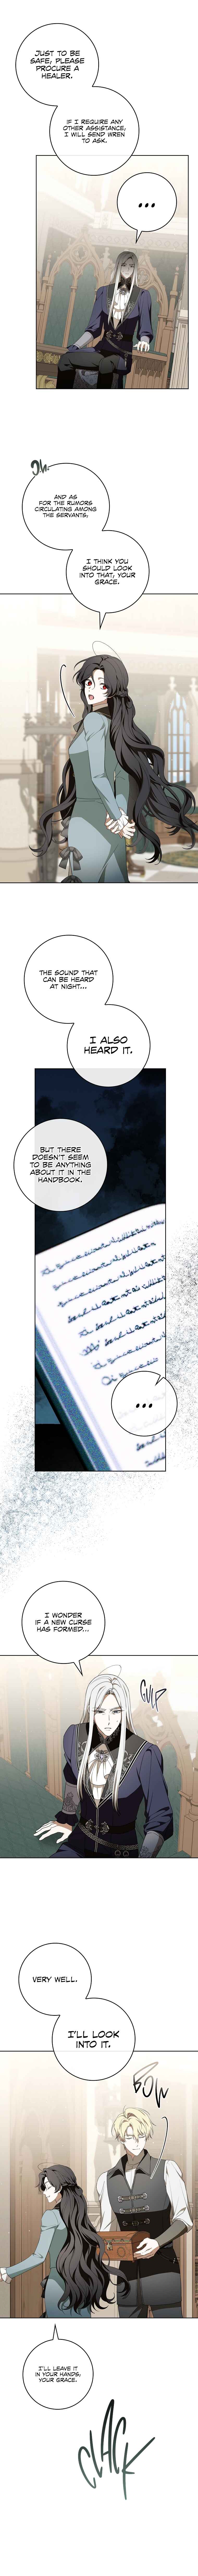 JUST TO BE
SAFE, PLEASE
PROCURE A
HEALER.
IF I REQUIRE ANY
OTHER ASSISTANCE,
I WILL SEND WREN
TO ASK.
...
AND AS
FOR THE RUMORS
CIRCULATING AMONG
THE SERVANTS,
I THINK YOU
SHOULD LOOK
INTO THAT, YOUR
GRACE.
THE SOUND THAT
CAN BE HEARD
AT NIGHT...
I ALSO
HEARD IT.
BUT THERE
DOESN'T SEEM
TO BE ANYTHING
ABOUT IT IN THE
HANDBOOK.
...
I WONDER
IF A NEW CURSE
HAS FORMED...
GULP
VERY WELL.
I'LL LOOK
INTO IT.
BOW
I'LL LEAVE IT
IN YOUR HANDS,
YOUR GRACE.
CLACK